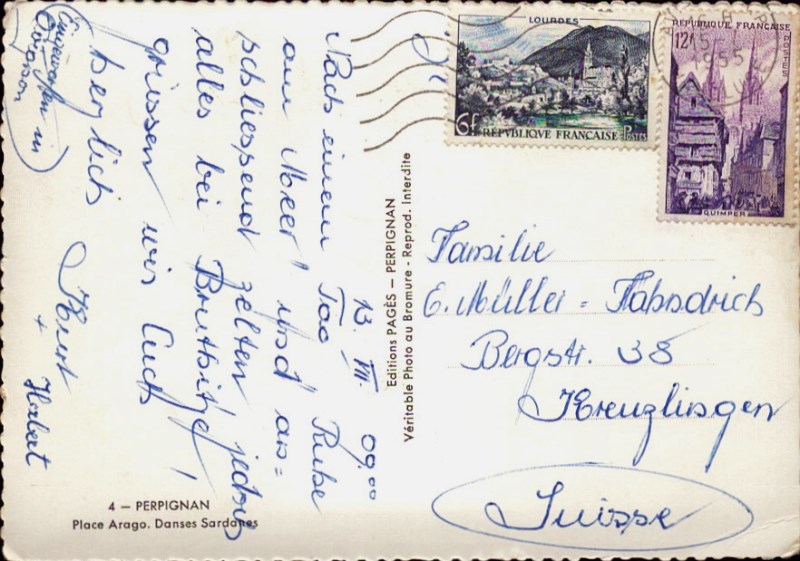 13. VII. 09.00
Nach einem Tag Ruhe
am Meer und an=
schliessend zelten, jedoch
alles bei Bruthitze!
grüssen wir Euch
herzlich
Kurt
+ Herbert
4 — PERPIGNAN
Place Arago. Danses Sardanes
Editions PAGÈS — PERPIGNAN
Véritable Photo au Bromure - Reprod. Interdite
LOURDES
6F RÉPUBLIQUE FRANÇAISE POSTES
RÉPUBLIQUE FRANÇAISE
12F
POSTES
1955
QUIMPER
Familie
E. Müller = Fahndrich
Bergstr. 38
Kreuzlingen
Suisse